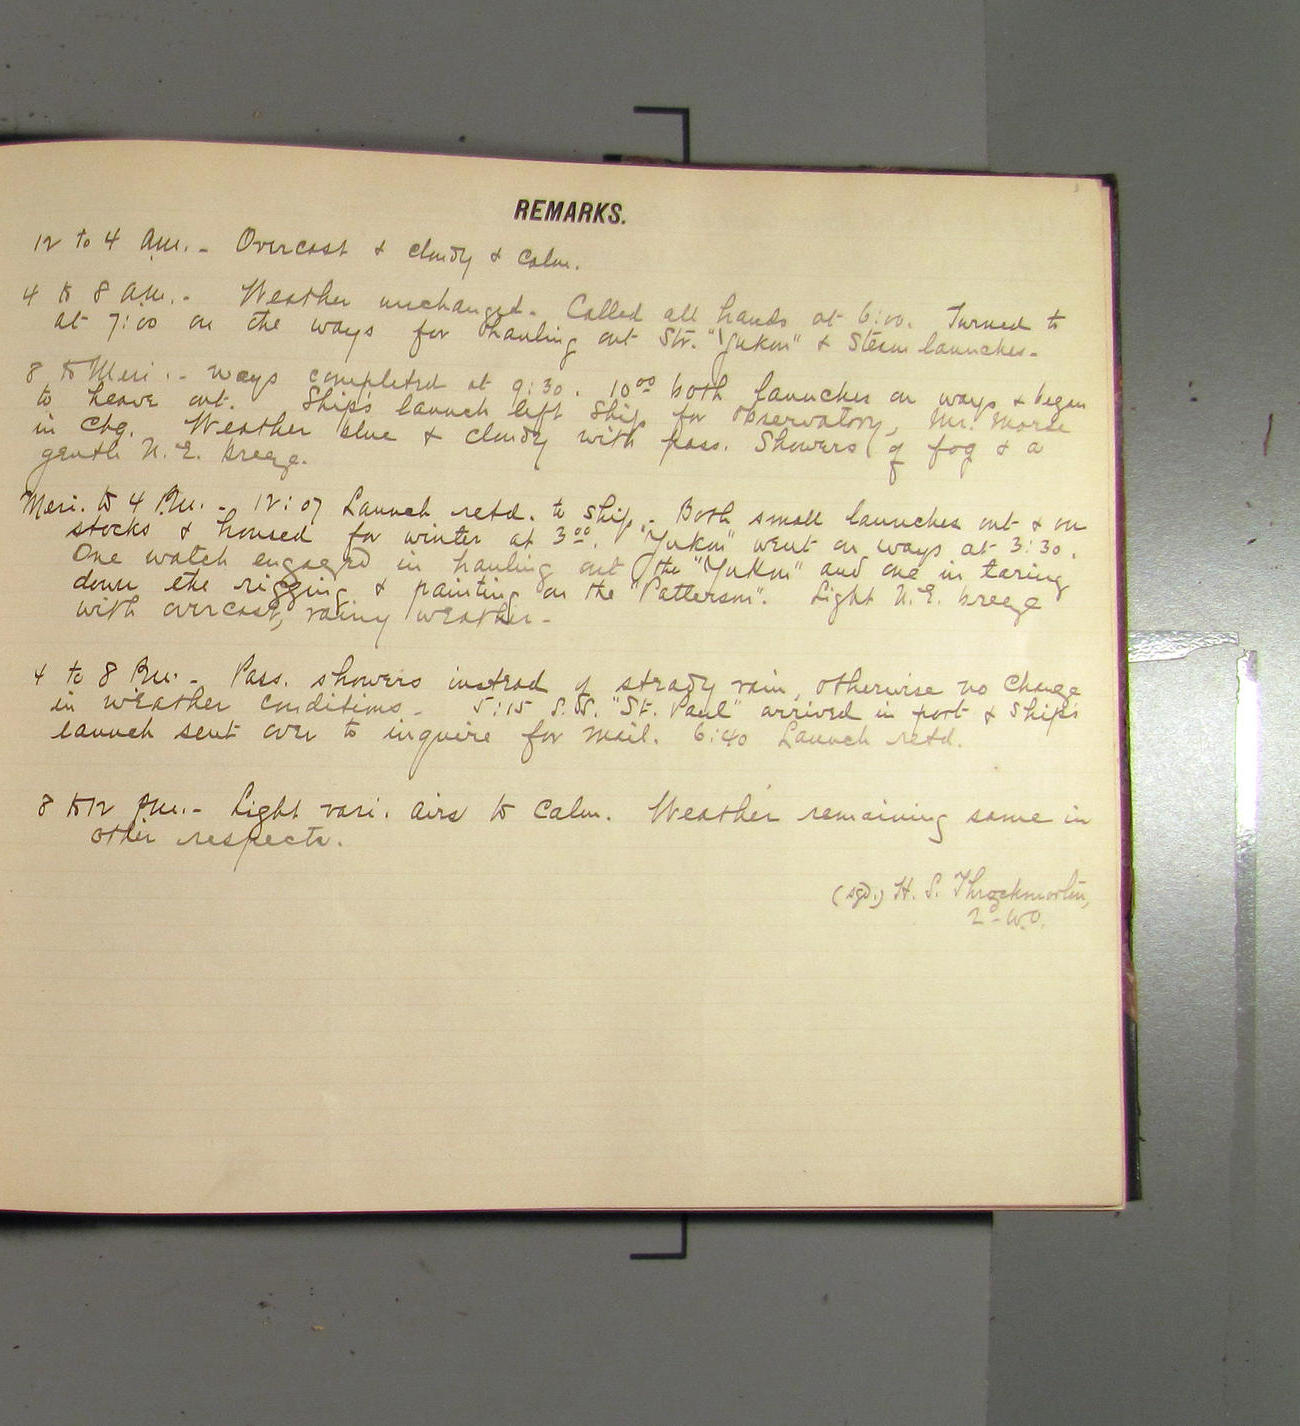 REMARKS.
12 to 4 a.m. - Overcast & cloudy & calm.
4 to 8 a.m. - Weather unchanged. Called all hands at 6:00. Turned to
at 7:00 on the ways for hauling out Str. "Yukon" & Steam launches -
8 to Meri. - Ways completed at 9:30. 10 00 both launches on ways & began
to heave out. Ship's launch left Ship for Observatory, Mr. Morse
in Chg. Weather blue & cloudy with pass. Showers of fog & a
gentle N.E. breeze.
Meri. to 4 P.m. - 12:07 Launch retd. to Ship. Both small launches out & on
stocks & housed for winter at 3 00. "Yukon" went on ways at 3:30.
One watch engaged in hauling out the "Yukon" and one in taring
down the rigging & painting on the "Patterson". Light N.E. breeze
with overcast, rainy weather -
4 to 8 P.m. - Pass. showers instead of steady rain, otherwise no change
in weather conditions - 5:15 S.S. "St. Paul" arrived in port & Ship's
launch sent over to inquire for mail. 6:40 Launch retd.
8 to 12 p.m. - Light vari. airs to calm. Weather remaining same in
other respects.
(sgd.) H. S. Throckmorton,
2d W.O.